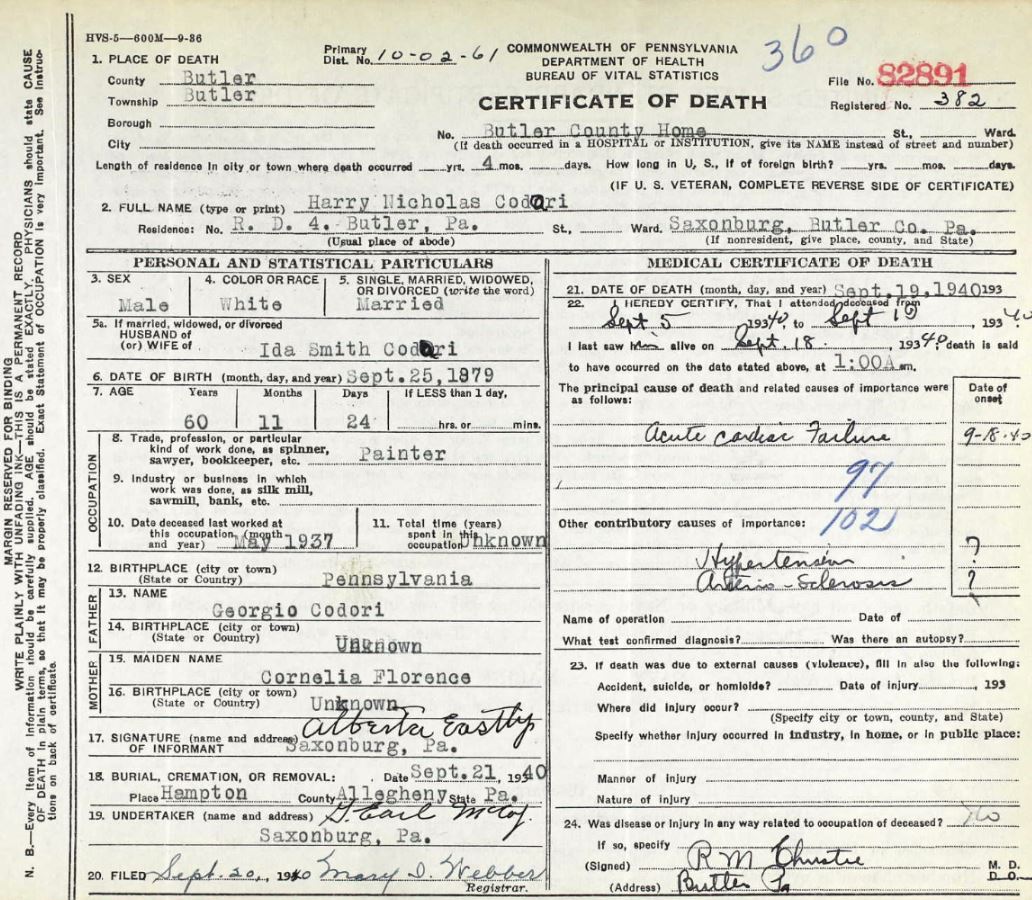 HVS-5—600M—9-36
360
Primary Dist. No. 10-02-61
COMMONWEALTH OF PENNSYLVANIA
DEPARTMENT OF HEALTH
BUREAU OF VITAL STATISTICS
CERTIFICATE OF DEATH
File No. 82891
Registered No. 382
1. PLACE OF DEATH
County Butler
Township Butler
Borough
City
No. Butler County Home St., Ward.
(If death occurred in a HOSPITAL or INSTITUTION, give its NAME instead of street and number)
Length of residence in city or town where death occurred yrs. 4 mos. days. How long in U. S., if of foreign birth? yrs. mos. days.
(IF U. S. VETERAN, COMPLETE REVERSE SIDE OF CERTIFICATE)
2. FULL NAME (type or print) Harry Nicholas Codori
Residence: No. R. D. 4. Butler, Pa. St., Ward. Saxonburg, Butler Co. Pa.
(Usual place of abode) (If nonresident, give place, county, and State)
PERSONAL AND STATISTICAL PARTICULARS
3. SEX Male
4. COLOR OR RACE White
5. SINGLE, MARRIED, WIDOWED, OR DIVORCED (write the word) Married
5a. If married, widowed, or divorced
HUSBAND of
(or) WIFE of Ida Smith Codori
6. DATE OF BIRTH (month, day, and year) Sept. 25, 1879
7. AGE Years Months Days If LESS than 1 day,
60 11 24 hrs. or mins.
OCCUPATION
8. Trade, profession, or particular
kind of work done, as spinner,
sawyer, bookkeeper, etc. Painter
9. Industry or business in which
work was done, as silk mill,
sawmill, bank, etc.
10. Date deceased last worked at
this occupation (month
and year) May 1937
11. Total time (years)
spent in this
occupation Unknown
12. BIRTHPLACE (city or town)
(State or Country) Pennsylvania
FATHER
13. NAME
Georgio Codori
14. BIRTHPLACE (city or town)
(State or Country) Unknown
MOTHER
15. MAIDEN NAME
Cornelia Florence
16. BIRTHPLACE (city or town)
(State or Country) Unknown
17. SIGNATURE (name and address) Alberta Eastly
OF INFORMANT Saxonburg, Pa.
18. BURIAL, CREMATION, OR REMOVAL: Date Sept. 21, 1940
Place Hampton County Allegheny State Pa.
19. UNDERTAKER (name and address) G. Earl McCoy
Saxonburg, Pa.
20. FILED Sept. 20, 1940 Mary D. Webber
Registrar.
MEDICAL CERTIFICATE OF DEATH
21. DATE OF DEATH (month, day, and year) Sept. 19, 1940 193
22. I HEREBY CERTIFY, That I attended deceased from
Sept. 5 19340 to Sept 19 19340
I last saw him alive on Sept. 18. 19340 death is said
to have occurred on the date stated above, at 1:00A m.
The principal cause of death and related causes of importance were
as follows:
Date of onset
Acute cardiac Failure 9-18-40
97
Other contributory causes of importance: 102
Hypertension ?
Arterio-Sclerosis ?
Name of operation Date of
What test confirmed diagnosis? Was there an autopsy?
23. If death was due to external causes (violence), fill in also the following:
Accident, suicide, or homicide? Date of injury , 193
Where did injury occur?
(Specify city or town, county, and State)
Specify whether injury occurred in industry, in home, or in public place:
Manner of injury
Nature of injury
24. Was disease or injury in any way related to occupation of deceased? No
If so, specify
(Signed) R M Christie M. D.
D. O.
(Address) Butler Pa
MARGIN RESERVED FOR BINDING
WRITE PLAINLY WITH UNFADING INK—THIS IS A PERMANENT RECORD
N. B.—Every item of information should be carefully supplied. AGE should be stated EXACTLY. PHYSICIANS should state CAUSE
OF DEATH in plain terms, so that it may be properly classified. Exact Statement of OCCUPATION is very important. See instruc-
tions on back of certificate.